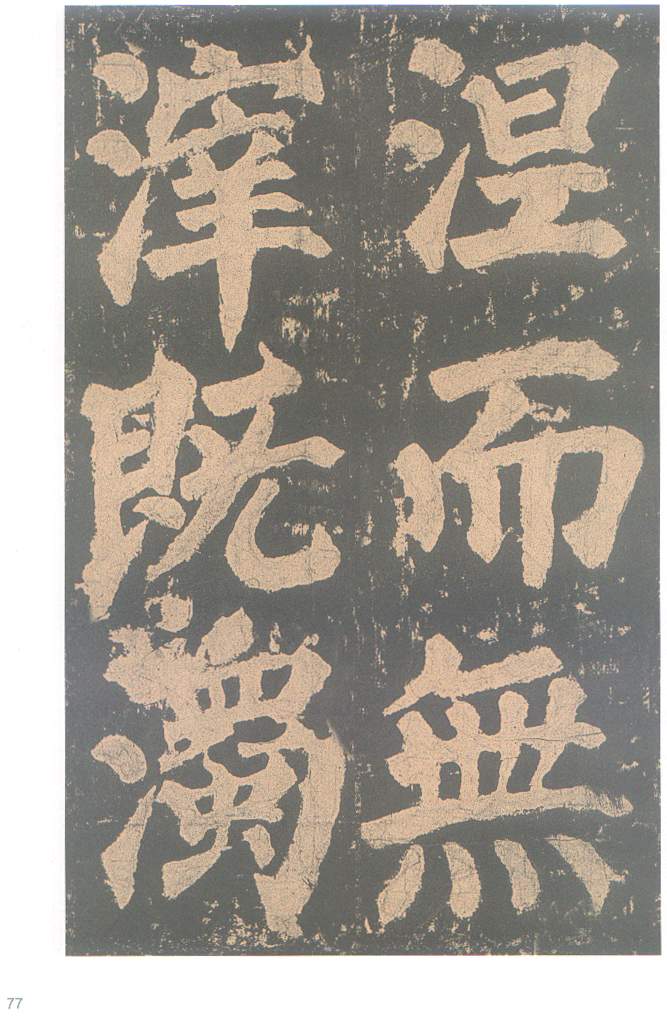 涅而無
滓既濁
77